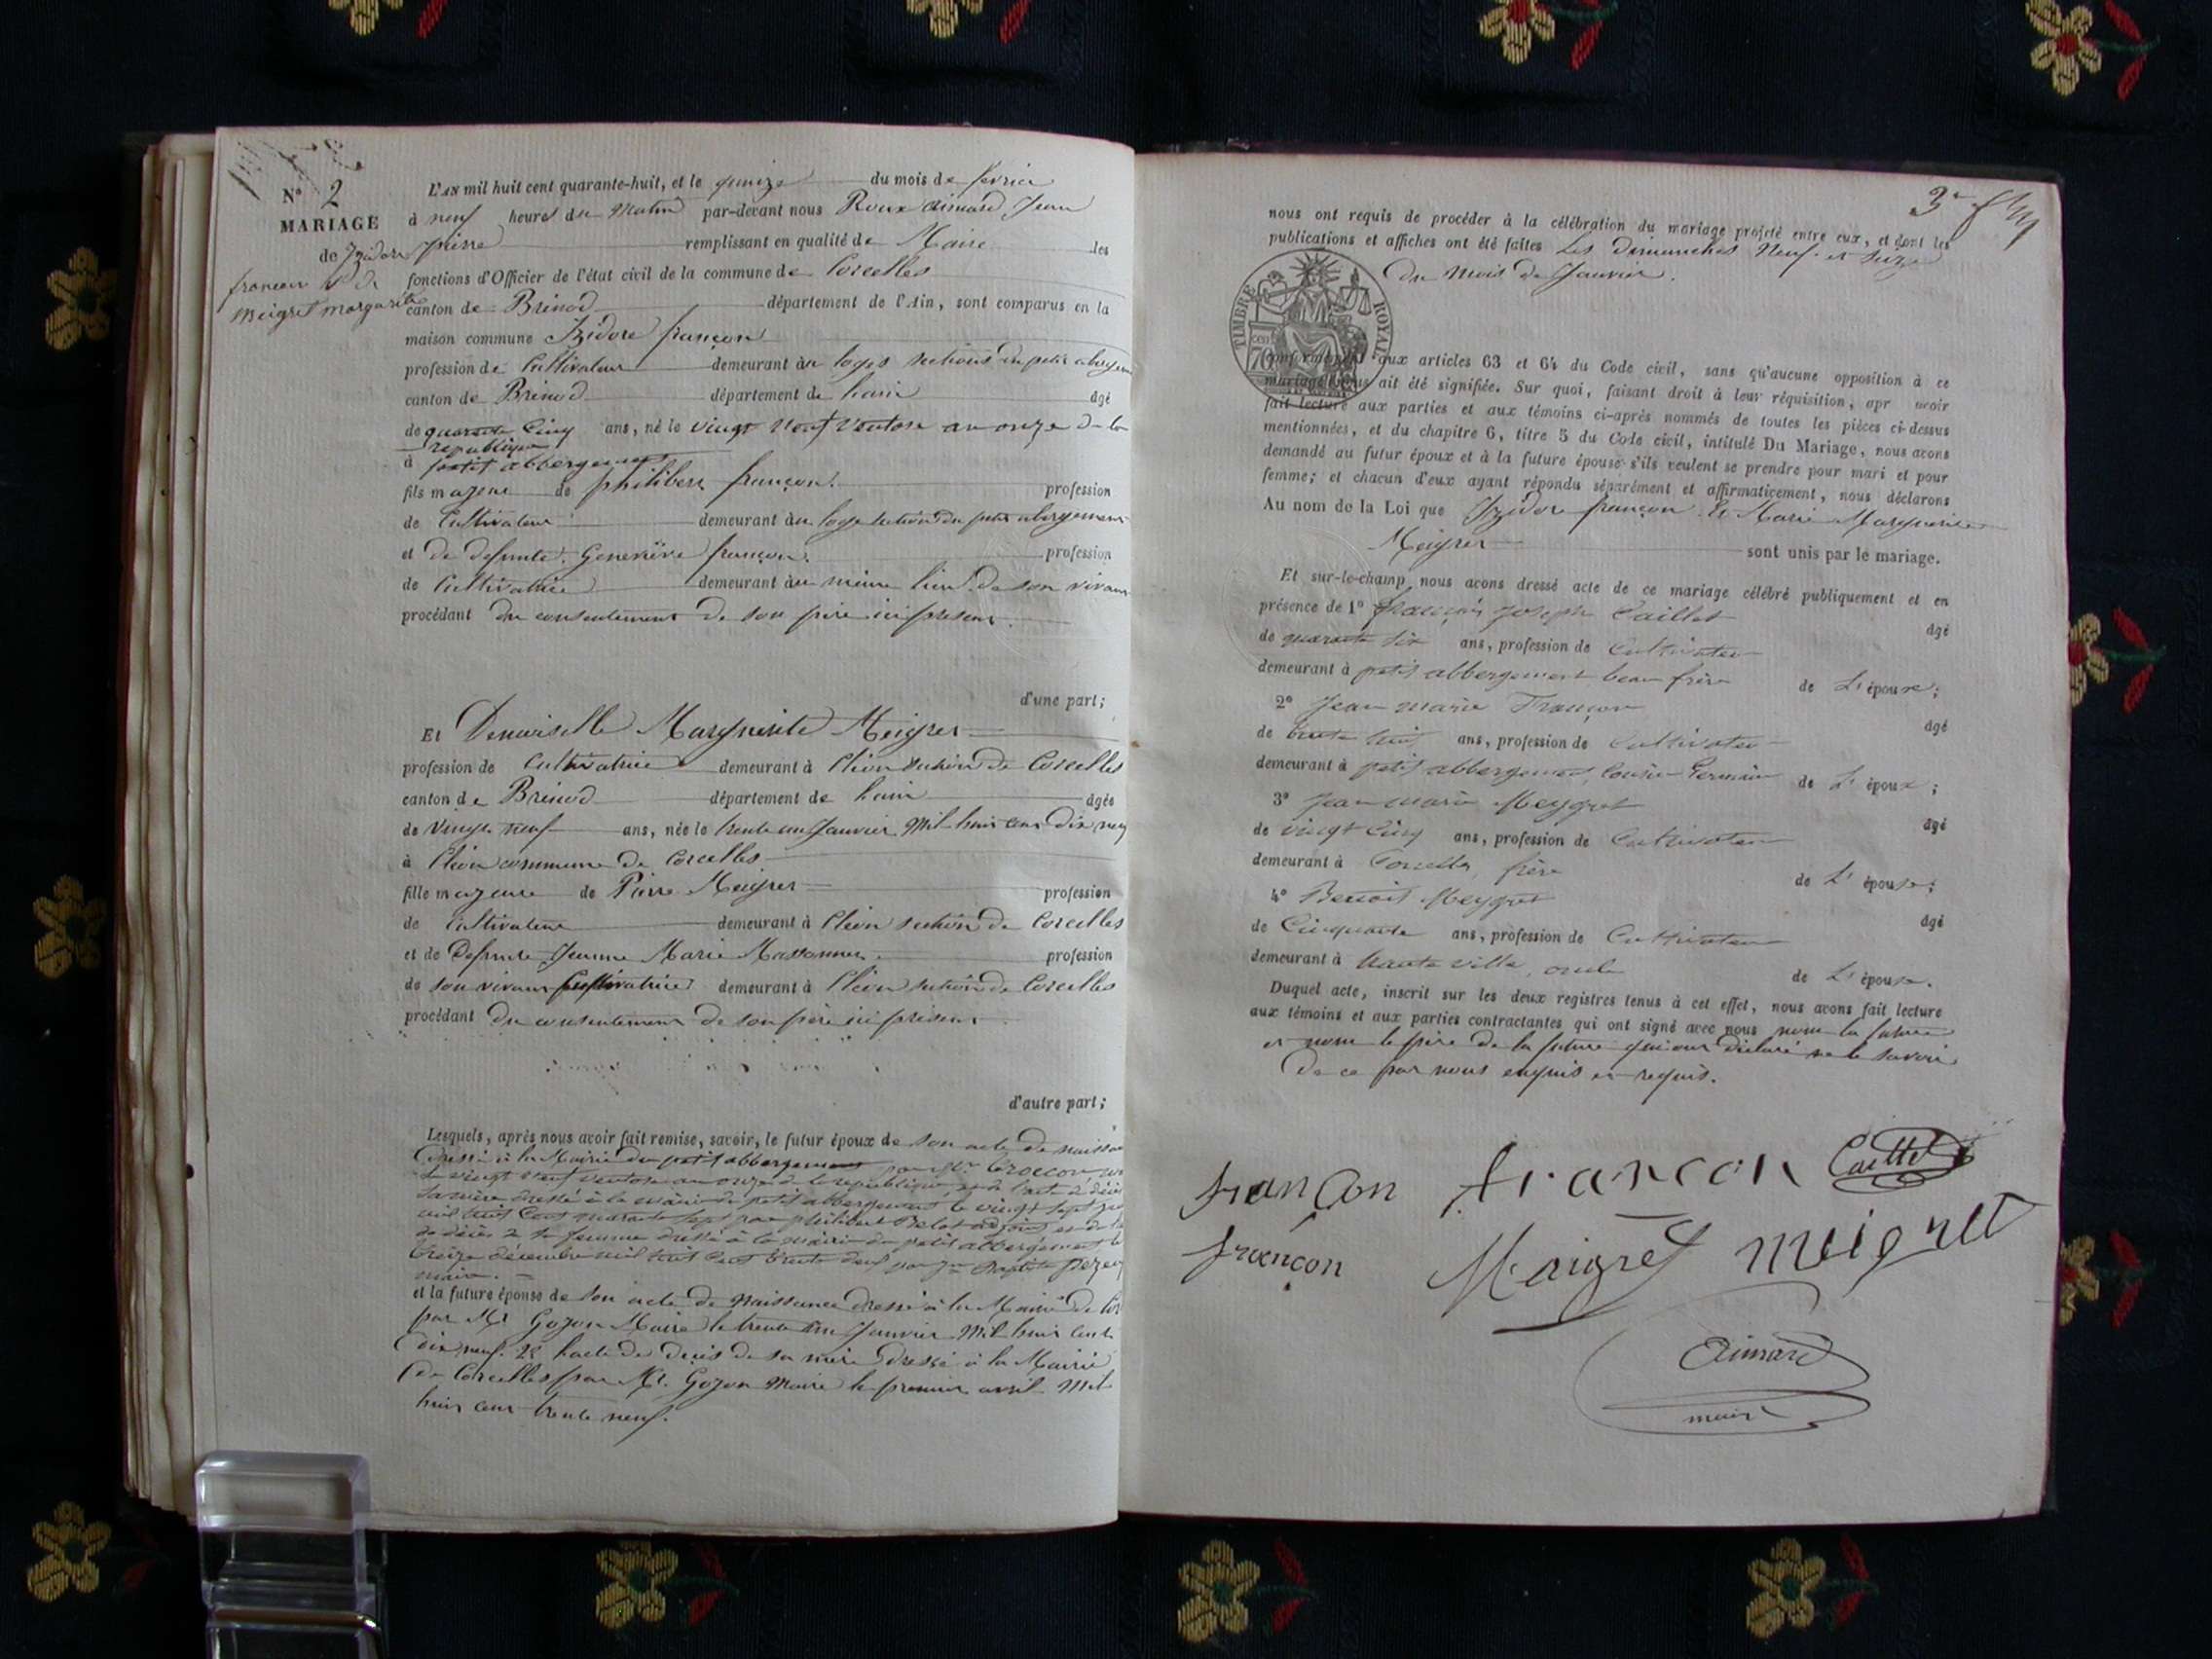 N.º 2
MARIAGE
de Izidore
françon & de
meigret margarite
L'AN mil huit cent quarante-huit, et le quinze du mois de février
à neuf heures du Matin par-devant nous Roux aimard Jean
pierre remplissant en qualité de Maire les
fonctions d'Officier de l'état civil de la commune de Corcelles
canton de Brénod département de l'Ain, sont comparus en la
maison commune Izidore françon
profession de Cultivateur demeurant au loges sections du petit abergem
canton de Brénod département de lain âgé
de quarante Cinq ans, né le vingt neuf Ventose an onze de la
republique
à petit abbergement
fils majeur de philibert françon profession
de Cultivateur demeurant au loge section du petit abergement
et de defunte Geneviève françon profession
de Cultivatrice demeurant au même lieu de son vivant
procédant du consentement de son père ici present.
d'une part;
Et Demoiselle Marguerite Meigret
profession de Cultivatrice demeurant à Cléon section de Corcelles
canton de Brénod département de lain âgée
de Vingt neuf ans, née le trente un Janvier Mil huit cent dix neuf
à Cléon commune de Corcelles
fille majeure de Pierre Meigret profession
de Cultivateur demeurant à Cléon section de Corcelles
et de Defunte Jeanne Marie Massonnet profession
de son vivant Cultivatrice demeurant à Cléon section de Corcelles
procédant du consentement de son père ici présent
d'autre part;
Lesquels, après nous avoir fait remise, savoir, le futur époux de son acte de naissan
Dressé à la Mairie du petit abbergement par Mr
le vingt neuf ventose an onze de la republique, et de l'acte de décès
sa mère dressé à la mairie du petit abbergement le vingt sept
mil huit Cent quarante sept par philibert Belot adjoint et de
de décès de sa femme dressé à la mairie du petit abbergement le
treize décembre mil huit cent trente neuf par Jn Baptiste
maire.
et la future épouse de son acte de Naissance dressé à la Mairie de Cor
par Mr Gojon Maire le trente un Janvier Mil huit Cent
dix neuf. & lacte de decès de sa mère Dressé à la Mairie
de Corcelles par Mr. Gojon Maire le premier avril Mil
huit cent trente neuf.
nous ont requis de procéder à la célébration du mariage projeté entre eux, et dont les
publications et affiches ont été faites Les dimanches Neuf et seize
du Mois de Janvier.
TIMBRE ROYAL
conformément aux articles 63 et 64 du Code civil, sans qu'aucune opposition à ce
mariage nous ait été signifiée. Sur quoi, faisant droit à leur réquisition, apr avoir
fait lecture aux parties et aux témoins ci-après nommés de toutes les pièces ci-dessus
mentionnées, et du chapitre 6, titre 5 du Code civil, intitulé Du Mariage, nous avons
demandé au futur époux et à la future épouse s'ils veulent se prendre pour mari et pour
femme; et chacun d'eux ayant répondu séparément et affirmativement, nous déclarons
Au nom de la Loi que Izidore françon & Marie Marguerite
Meigret sont unis par le mariage.
Et sur-le-champ nous avons dressé acte de ce mariage célébré publiquement et en
présence de 1º françois joseph Caillet âgé
de quarante six ans, profession de Cultivateur
demeurant à petit abbergement beau frère de L'épouse;
2º Jean marie Françon âgé
de trente huit ans, profession de Cultivateur
demeurant à petit abbergement, Cousin Germain de L'époux;
3º Jean marie Meygret âgé
de vingt Cinq ans, profession de Cultivateur
demeurant à Corcelles, frère de L'épouse;
4º Benoit Meygret âgé
de Cinquante ans, profession de Cultivateur
demeurant à haute ville, oncle de L'épouse.
Duquel acte, inscrit sur les deux registres tenus à cet effet, nous avons fait lecture
aux témoins et aux parties contractantes qui ont signé avec nous non la future
et non le père de la future qui ont déclaré ne le savoir
De ce par nous enquis et requis.
françon françon Caillet
françon Maigret meigret
Aimard
maire